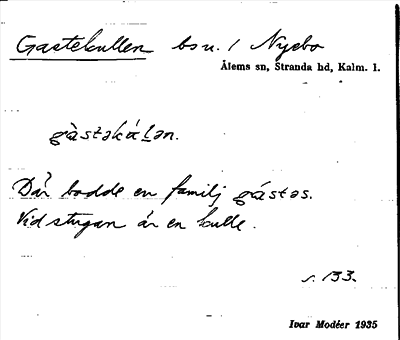 Gastekullen bsn. / Nyebo
Ålems sn, Stranda hd, Kalm. l.
gàstəkáḷən.
Där bodde en familj gástəs.
Vid stugan är en kulle.
s. 133.
Ivar Modéer 1935